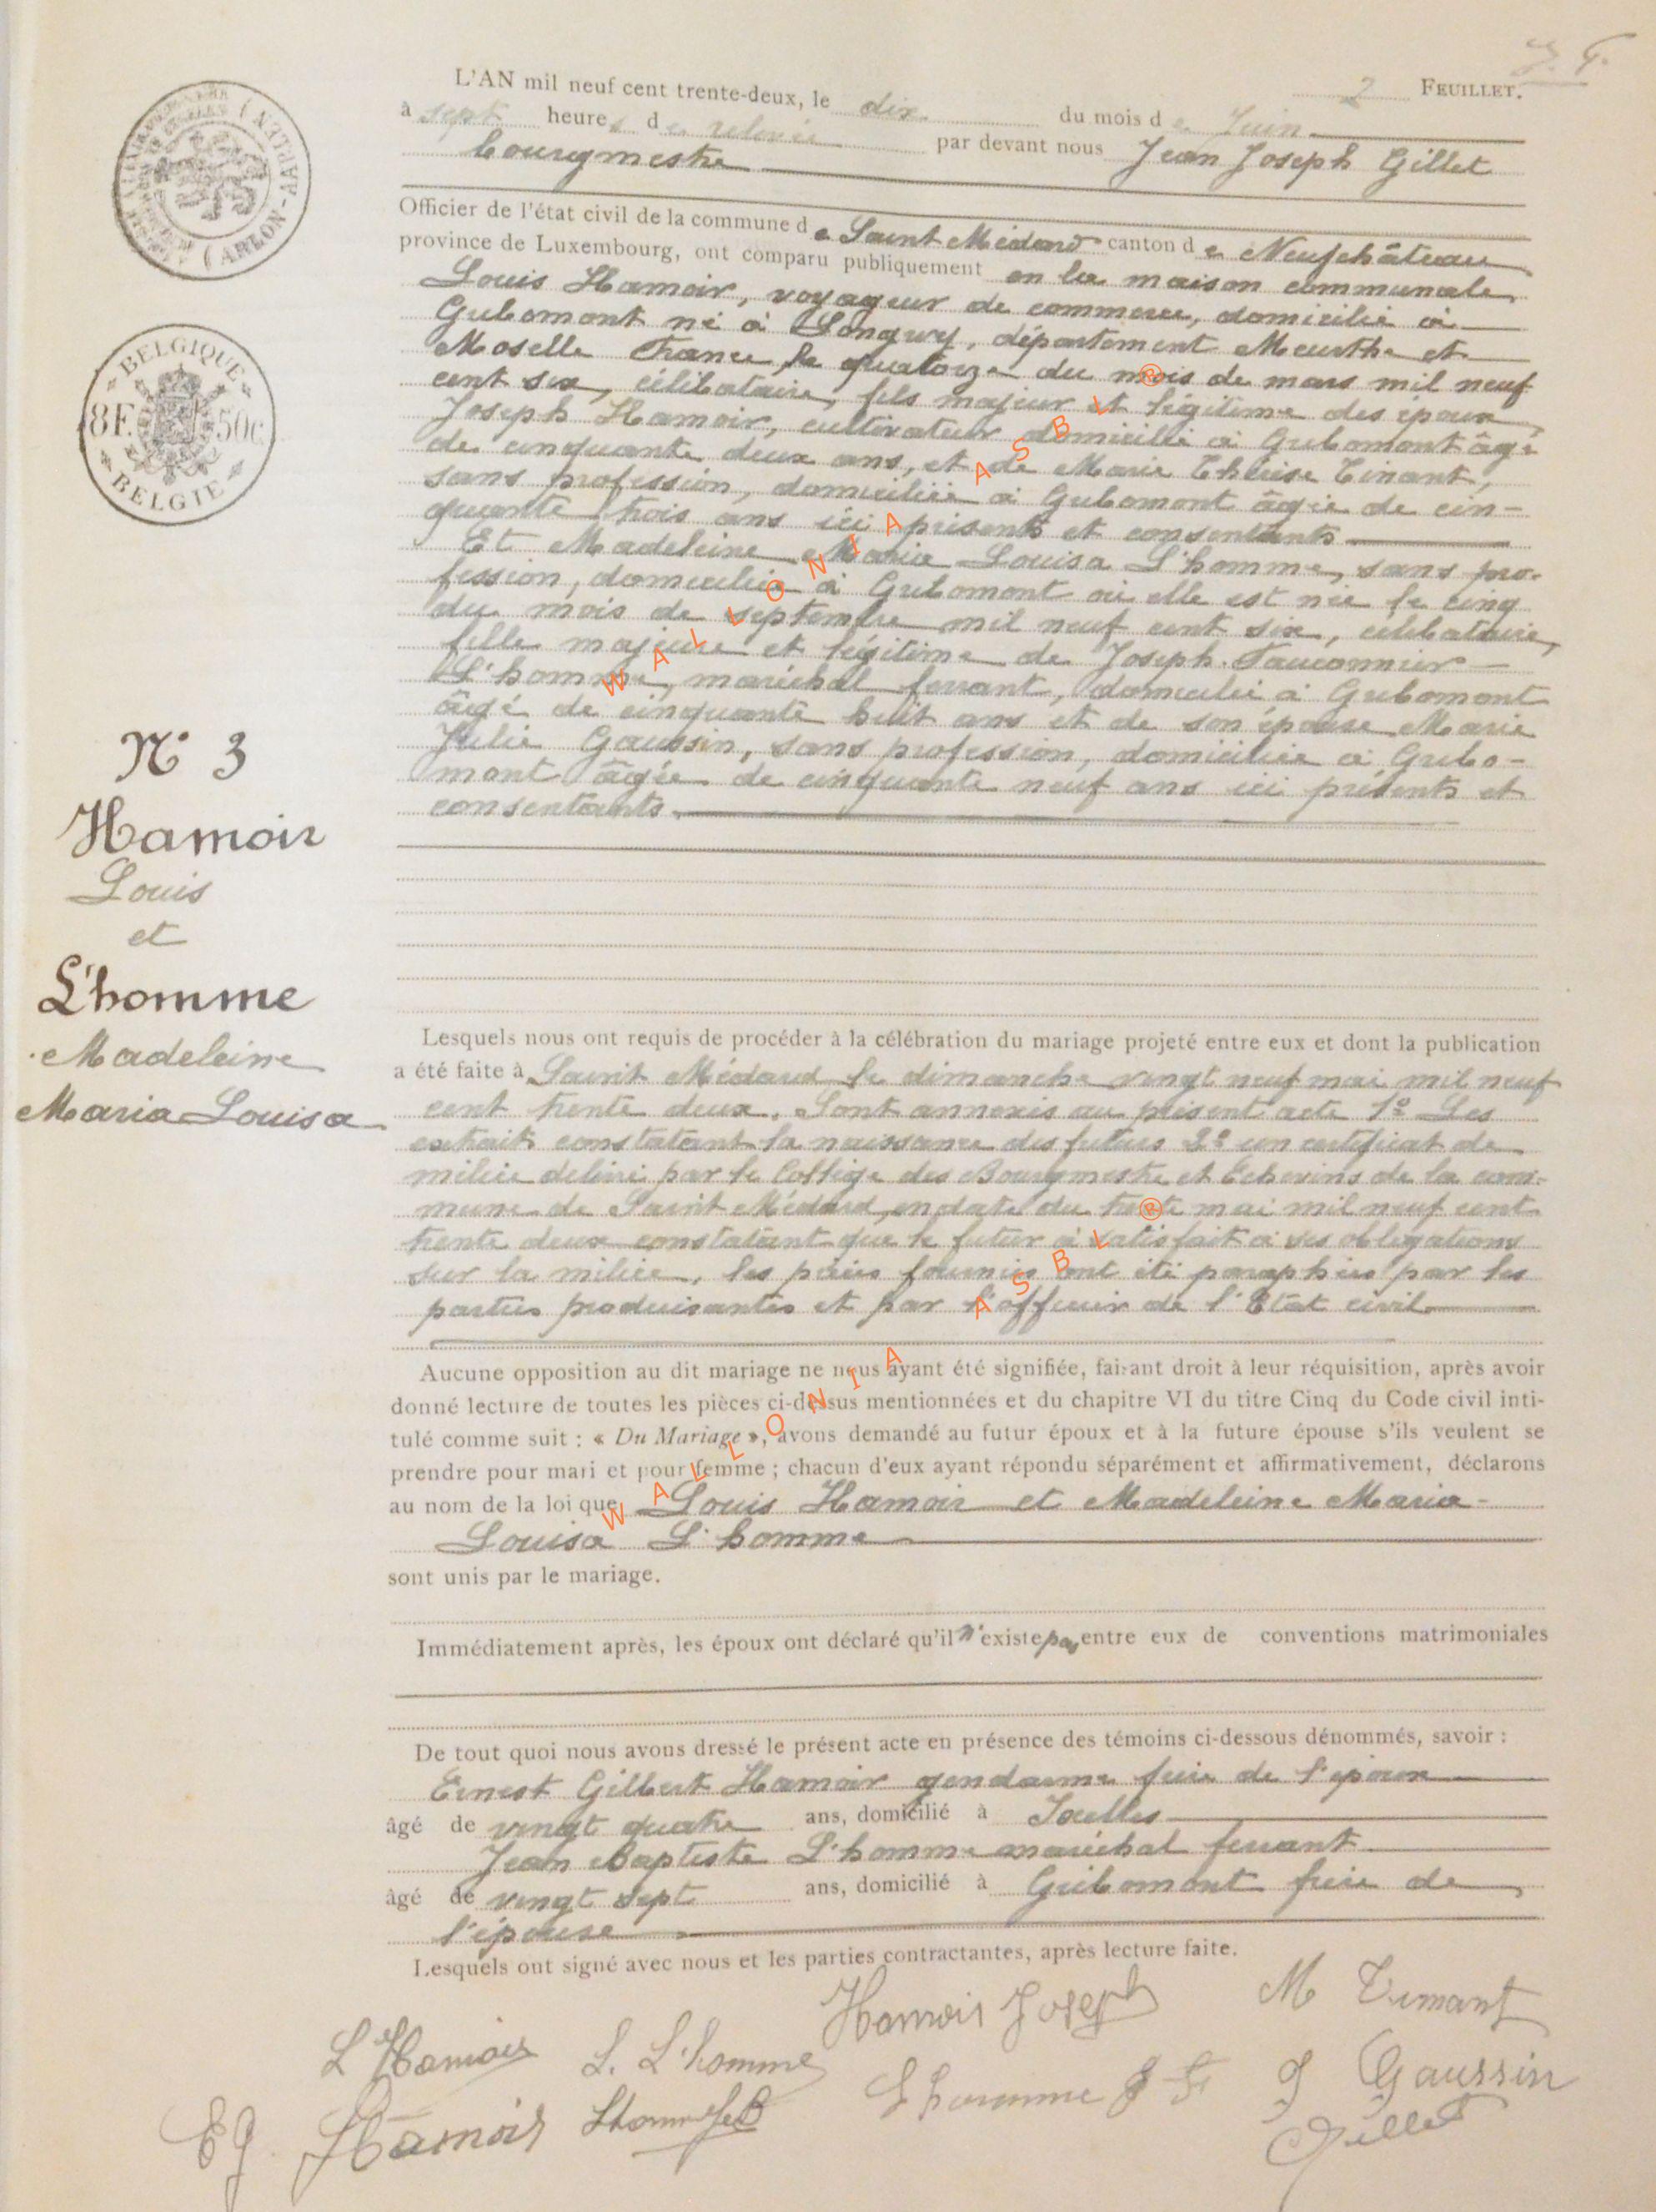 J. G.
2 FEUILLET.
L'AN mil neuf cent trente-deux, le dix du mois de Juin
à sept heures de relevée par devant nous Jean Joseph Gillet
bourgmestre
Officier de l'état civil de la commune de Saint Médard canton de Neufchâteau
province de Luxembourg, ont comparu publiquement en la maison communale
Louis Hamoir, voyageur de commerce, domicilié à
Gribomont né à Longwy, département Meurthe et
Moselle France le quatorze du mois de mars mil neuf
cent six, célibataire, fils majeur et légitime des époux
Joseph Hamoir, cultivateur domicilié à Gribomont âgé
de cinquante deux ans, et de Marie Thérèse Tinant,
sans profession, domiciliée à Gribomont âgée de cin-
quante trois ans ici présents et consentants
Et Madeleine Maria Louisa L'homme, sans pro-
fession, domiciliée à Gribomont où elle est née le cinq
du mois de septembre mil neuf cent six, célibataire,
fille majeure et légitime de Joseph Fauconnier
L'homme, maréchal ferrant, domicilié à Gribomont
âgé de cinquante huit ans et de son épouse Marie
Julie Gaussin, sans profession, domiciliée à Gribo-
mont âgée de cinquante neuf ans ici présents et
consentants.
BELGIQUE
8F. 50c
BELGIE
(ARLON-AARLEN)
N° 3
Hamoir
Louis
et
L'homme
Madeleine
Maria Louisa
Lesquels nous ont requis de procéder à la célébration du mariage projeté entre eux et dont la publication
a été faite à Saint Médard le dimanche vingt neuf mai mil neuf
cent trente deux. Sont annexés au présent acte 1° Les
extraits constatant la naissance des futurs 2° un certificat de
milice délivré par le Collège des Bourgmestre et Echevins de la com-
mune de Saint Médard, en date du trente mai mil neuf cent
trente deux constatant que le futur à satisfait à ses obligations
sur la milice, les pièces fournies ont été paraphées par les
parties produisantes et par l'officier de l'Etat civil
Aucune opposition au dit mariage ne nous ayant été signifiée, faisant droit à leur réquisition, après avoir
donné lecture de toutes les pièces ci-dessus mentionnées et du chapitre VI du titre Cinq du Code civil inti-
tulé comme suit : « Du Mariage », avons demandé au futur époux et à la future épouse s'ils veulent se
prendre pour mari et pour femme ; chacun d'eux ayant répondu séparément et affirmativement, déclarons
au nom de la loi que Louis Hamoir et Madeleine Maria
Louisa L'homme
sont unis par le mariage.
Immédiatement après, les époux ont déclaré qu'il n'existe pas entre eux de conventions matrimoniales
De tout quoi nous avons dressé le présent acte en présence des témoins ci-dessous dénommés, savoir :
Ernest Gilbert Hamoir gendarme frère de l'époux
âgé de vingt quatre ans, domicilié à Ixelles
Jean Baptiste L'homme maréchal ferrant
âgé de vingt sept ans, domicilié à Gribomont frère de
l'épouse
Lesquels ont signé avec nous et les parties contractantes, après lecture faite.
Hamoir Joseph M Tinant
L Hamoir L. L'homme
Lhomme J F J Gaussin
EG Hamoir Lhomme JB Gillet
WALLONIA ASBL ®
WALLONIA ASBL ®